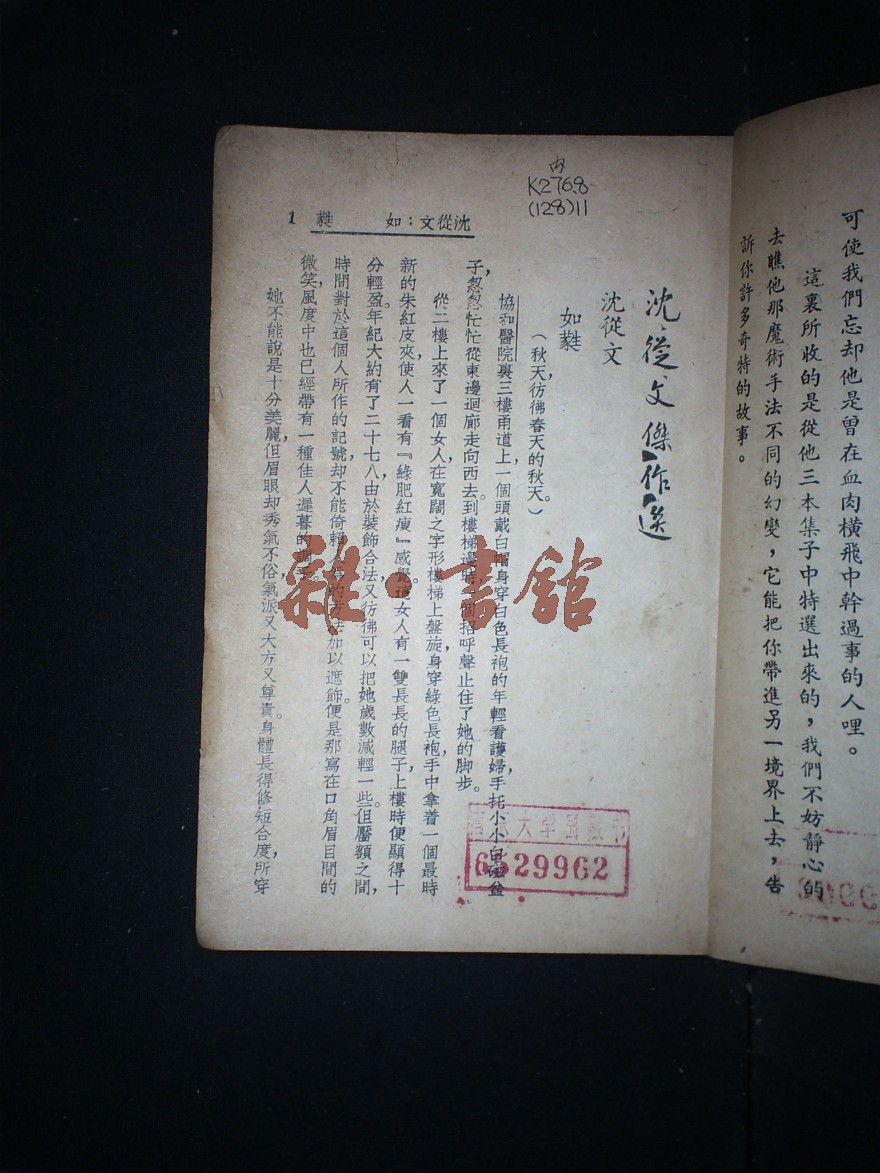 可使我們忘却他是曾在血肉橫飛中幹過事的人哩。
這裏所收的是從他三本集子中特選出來的，我們不妨靜心的
去瞧他那魔術手法不同的幻變，它能把你帶進另一境界上去，告
訴你許多奇特的故事。
内
K2768
(128)11
沈從文：如蕤 1
沈從文傑作選
沈從文
如蕤
（秋天，彷彿春天的秋天。）
協和醫院裏三樓甬道上，一個頭戴白帽身穿白色長袍的年輕看護婦，手托小小白磁盆
子，忽忽忙忙從東邊迴廊走向西去。到樓梯邊時，一個招呼聲止住了她的脚步。
從二樓上來了一個女人，在寬闊之字形樓梯上盤旋，身穿綠色長袍，手中拿着一個最時
新的朱紅皮夾，使人一看有『綠肥紅瘦』感覺。這女人有一雙長長的腿子，上樓時便顯得十
分輕盈。年紀大約有了二十七八，由於裝飾合法，又彷彿可以把她歲數減輕一些。但靨額之間，
時間對於這個人所作的記號，却不能倚賴的方法加以遮飾。便是那寫在口角眉目間的
微笑，風度中也已經帶有一種佳人遲暮的
她不能說是十分美麗，但眉眼却秀氣不俗，氣派又大方又尊貴。身體長得修短合度，所穿
大学
6529962
雜·書館